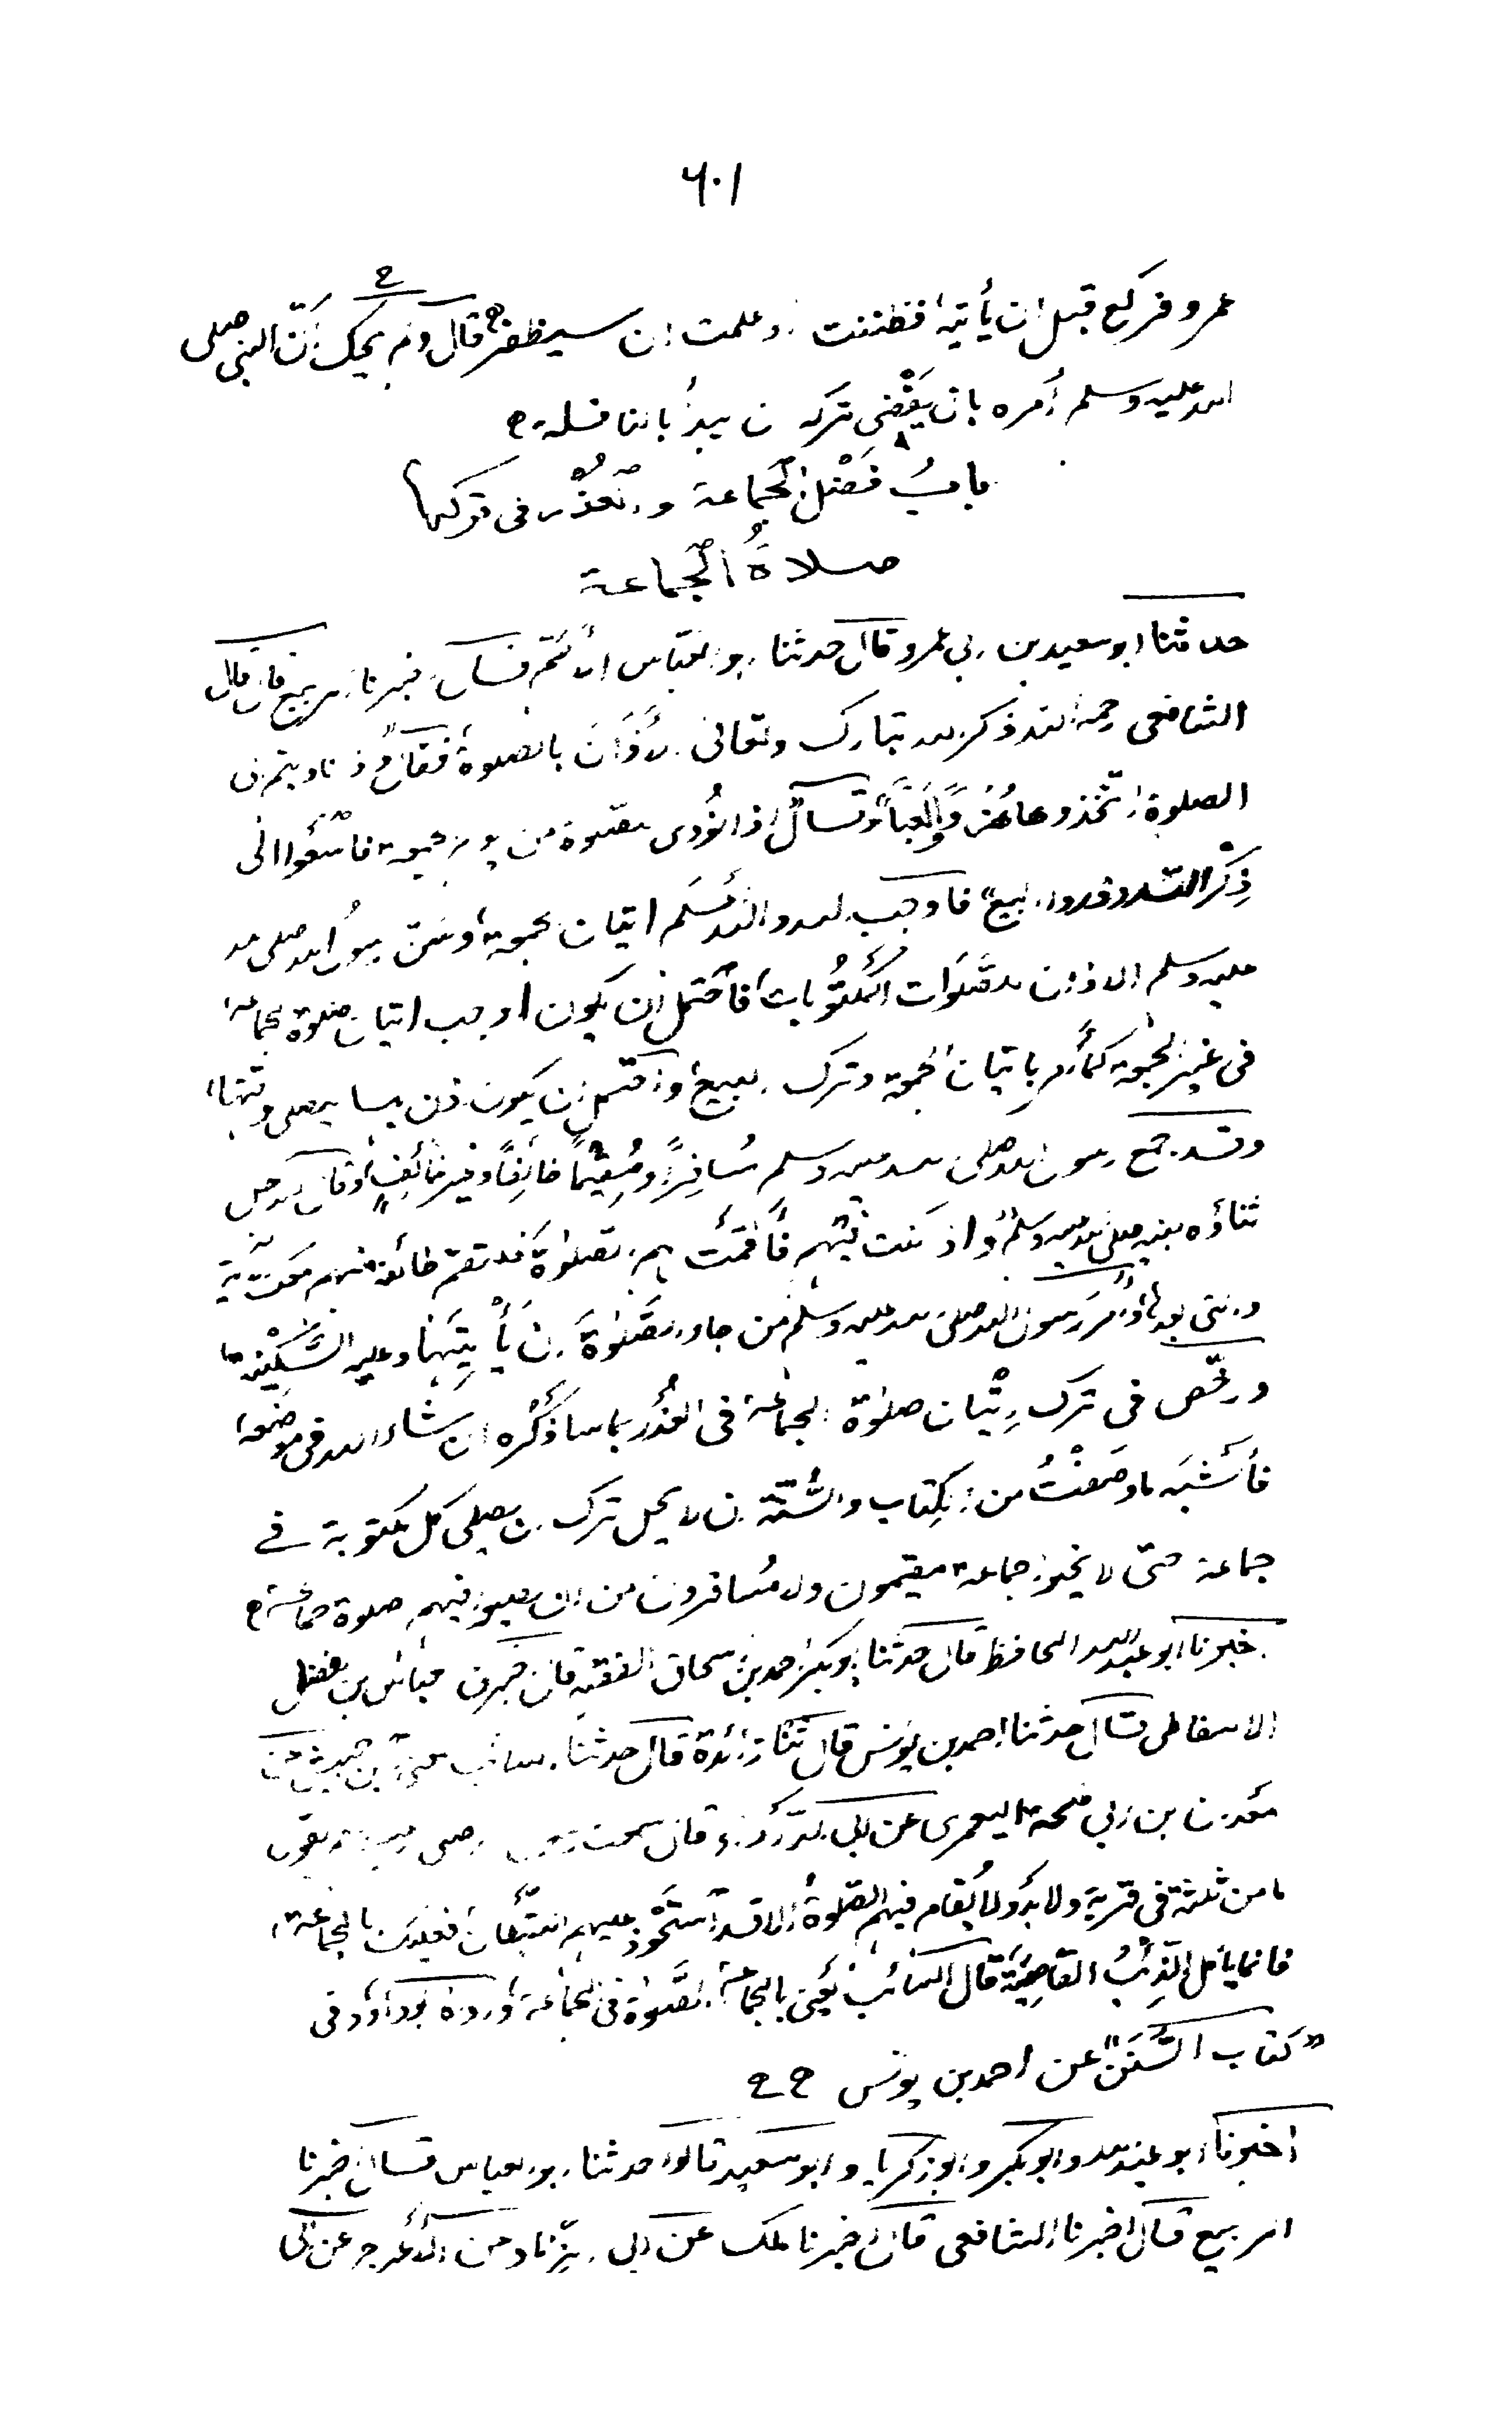 ٦٠١
عمرو فركع قبل ان يأتيه، فظننت، وعلمت ان سيظفر ح قال ولم يحك أنّ النبى صلى
الله عليه وسلم أمره بان يَقْضى تركه ان يبدأ بالنافلة ح
بابُ فَضْلِ الْجَماعة والعُذْر فى تركها
صلاةُ الْجماعة
حدثنا ابو سعيد بن ابى عمرو قال حدثنا ابو العبّاس الأصمّ قال اخبرنا الربيع قال قال
الشافعى رحمه الله ذكر الله تبارك وتعالى الأَذَانَ بالصلوة فقال واذا ناديتم الى
الصلوة اتّخذوها هُزُوًا وَّلَعِبًا وقال اذا نُودى للصلوة من يوم الجمعة فاسْعَوا الى
ذِكْر الله وذروا البيع، فاوجب الله والله أعلم اتيان الجمعة، وسَنّ رسول الله صلى الله
عليه وسلم الاذان للصَّلَوَات المَكْتُوبات، فاحتمل ان يكون اوجب اتيان صلوة الجماعة
فى غير الجمعة كما أمر باتيان الجمعة وترك البيع، واحتمل ان يكون اذن بها ليصلى لوقتها،
وقد جمع رسول الله صلى الله عليه وسلم مُسافِرًا ومُقِيْمًا خائِفًا وغير خائِفٍ، وقال الله جل
ثناؤه لنبيه صلى الله عليه وسلم واذا كنت فيهم فَأَقَمْتَ لهم الصلوٰة فلتقم طائفة منهم معك الآية
والتى بعدها، وأمر رسول الله صلى الله عليه وسلم من جاء الصَّلوٰةَ ان يَأْتِيَهَا وعليه السَّكِيْنة،
ورخّص فى ترك اِتْيان صلوٰة الجماعة فى العُذْر بما سأذكره ان شاء الله فى موضعه،
فأَشْبَه ما وصَفْتُ من الكِتاب والسُّنّة ان لا يحل ترك ان يصلى كل مكتوبة فى
جماعة حتى لا يخلو جماعة مقيمون ولا مُسافرون من ان يصلى فيهم صلوة جماعة ح
اخبرنا ابو عبد الله الحافظ قال حدثنا ابو بكر احمد بن اسحاق الفقيه قال اخبرنا عباس بن الفضل
الاسفاطى قال حدثنا احمد بن يونس قال ثنا زائدة قال حدثنا السائب بن حبيش عن
معدان بن ابى طلحة اليعمرى عن ابى الدّرداء قال سمعت رسول الله صلى الله عليه وسلم يقول
ما من ثلثة فى قرية ولا بَدْو لا يُقام فيهم الصّلوةُ الا قد اسْتَحْوَذ عليهم الشيطان، فعليك بالجماعة،
فانما يأكل الذِّئْبُ القاصِيَة، قال السائب يَعْنى بالجماعة الصَّلوٰة فى الجماعة، أورده ابو داؤد فى
"كتاب السُّنَن" عن احمد بن يونس ح ح
اخبرنا ابو عبد الله وابو بكر وابو زكريا وابو سعيد قالوا حدثنا ابو العباس قال اخبرنا
الربيع قال اخبرنا الشافعى قال اخبرنا ملك عن ابى الزّناد عن الأعرج عن ابى